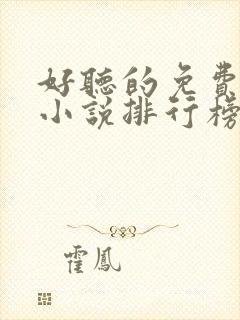 好聽的免費
小說排行榜
霍鳳